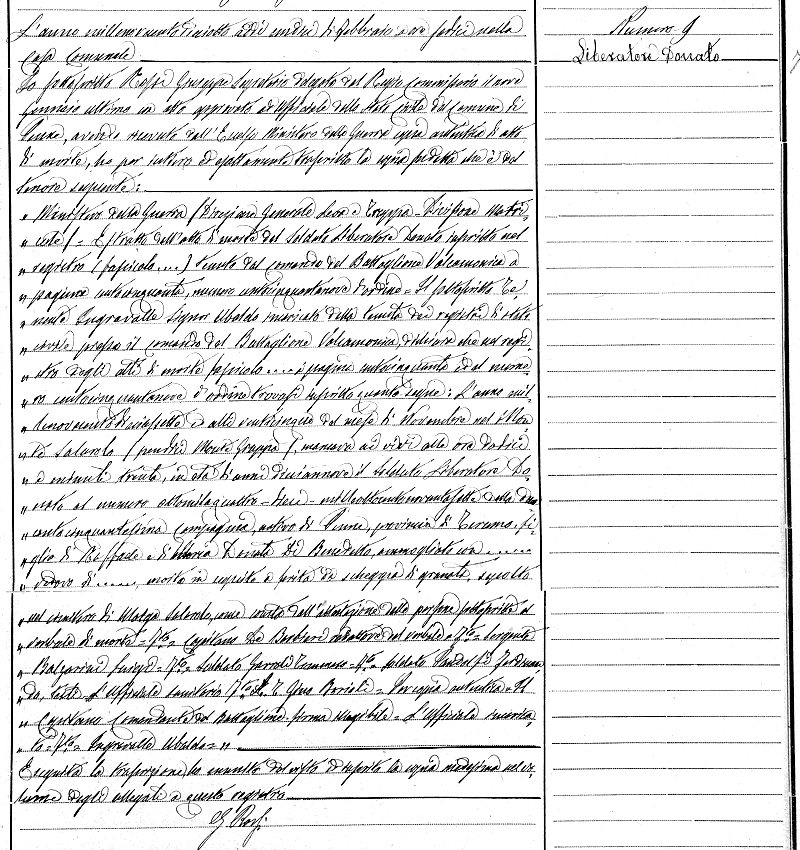 Numero 9
Liberatore Donato
L'anno millenovecentodiciotto, addì undici di Febbraio a ore sedici nella
Casa Comunale
Io sottoscritto Rossi Giuseppe Segretario delegato dal Regio Commissario il nove
Gennaio ultimo con atto approvato ad Ufficiale dello Stato Civile del Comune di
Penne, avendo ricevuto dall'Ecc Ministero della Guerra copia autentica di atto
di morte, ho per intero ed esattamente trascritto la copia predetta che è del
tenore seguente:
" Ministero della Guerra (Direzione Generale Leva e Truppa - Divisione Matri-
" cole) - Estratto dell'atto di morte del Soldato Liberatore Donato inscritto nel
" registro (fascicolo ....) tenuto dal comando del Battaglione Valcamonica a
" pagina centocinquanta, numero centocinquantanove d'ordine = Il sottoscritto Te-
" nente Ingravalle Signor Ubaldo incaricato della tenuta dei registri di stato
" civile presso il comando del Battaglione Valcamonica, dichiara che nel regi-
" stro degli atti di morte fascicolo .... a pagina centocinquanta ed al nume-
" ro centocinquantanove d'ordine trovasi inscritto quanto segue: L'anno mil-
" lenovecentodiciassette ed alli venticinque del mese di Novembre nel
" Salarolo (pendici Monte Grappa), mancava ai vivi alla ore dodici
" e minuti trenta, in età di anni diciannove il soldato Liberatore Do-
" nato al numero
" centocinquantesima Compagnia, nativo di Penne, provincia di Teramo, fi-
" glio di e di Maria Donata Di Benedetto, ammogliato con ......
" vedovo di ......, morto in seguito a ferita da scheggia di granata, sepolto
" nel cimitero di Malga Salarolo, come consta dall'attestazione delle persone sottoscritte al
" verbale di morte = F.to = Capitano La Barbera relatore del verbale = F.to = Sergente
" Luigi = F.to = Soldato Tommaso = F.to = Soldato Ferdinan-
" do, testi = L'Ufficiale sanitario F.to Gino = Per copia autentica = Il
" Capitano Comandante del Battaglione firma illegibile = L'Ufficiale incarica-
" to = F.to = Ingravalle Ubaldo = "
Eseguita la trascrizione, ho munito del visto ed inserito la copia medesima nel vo-
lume degli allegati a questo registro
G Rossi